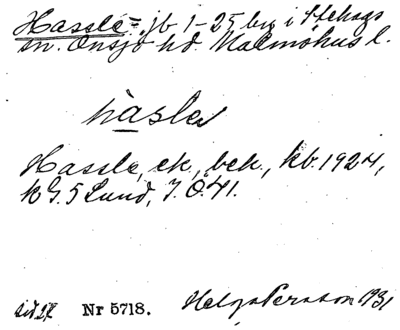 Hassle = jb 1-25 by i Stehags
sn. Onsjö hd. Malmöhus l.
hasle
Hassle, ek., bek., kb. 1924,
k G. 5 Lund, J. Ö. 41.
Nr 5718. Helge Persson 1931